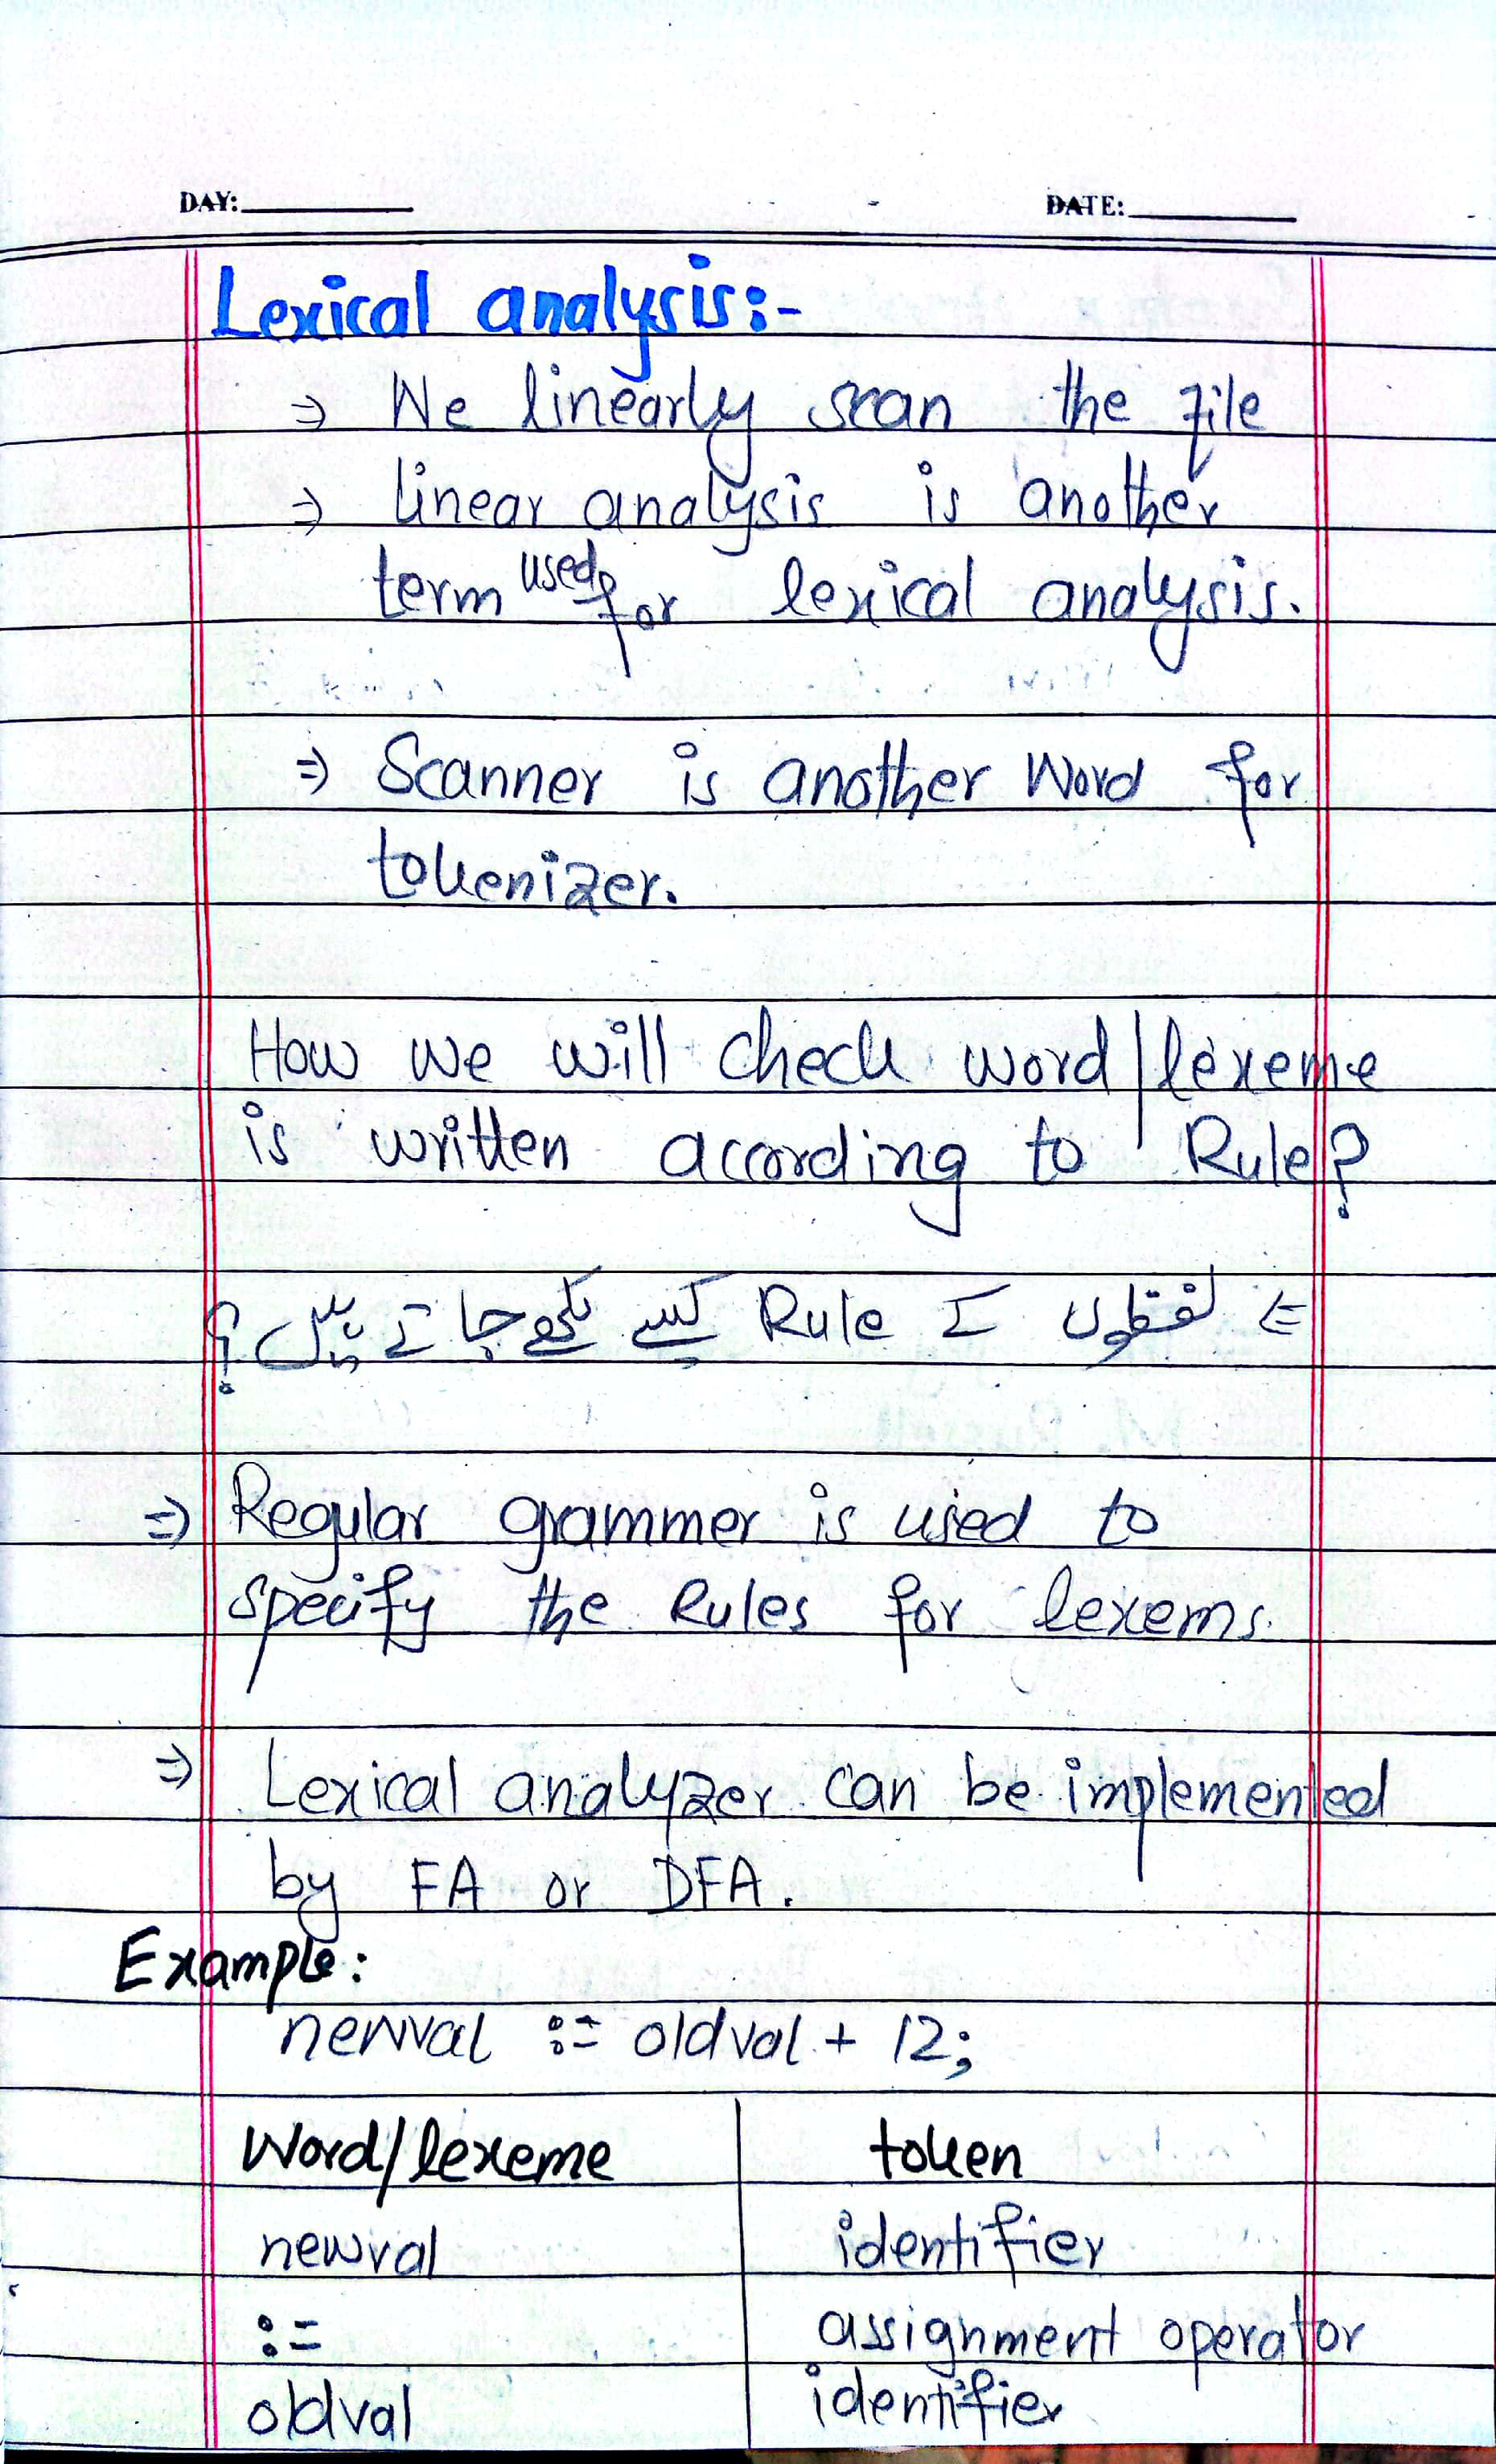 DAY: DATE:
Lexical analysis:-
⇒ We linearly scan the file
⇒ linear analysis is another
term used for lexical analysis.
⇒ Scanner is another Word for
tokenizer.
How we will check word/lexeme
is written according to Rule?
⇐ لفظوں کے Rule کیسے لکھے جاتے ہیں ؟
⇒ Regular grammer is used to
specify the Rules for lexems.
⇒ Lexical analyzer can be implemented
by FA or DFA.
Example:
newval := oldval + 12;
Word/lexeme token
newval identifier
:= assignment operator
oldval identifier